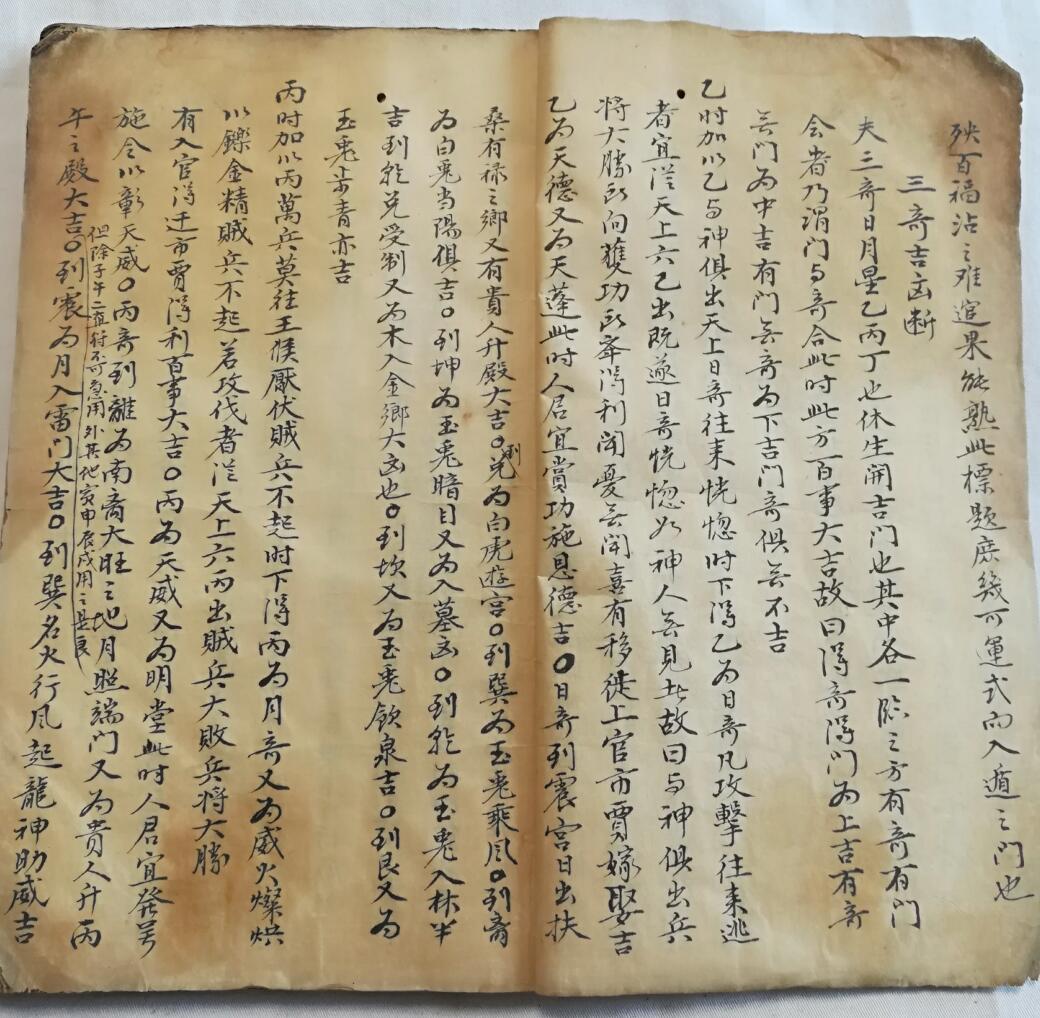 殃百福沾之难谊果能熟此標题庶幾可運式而入遁之門也
三奇吉凶断
夫三奇日月星乙丙丁也休生開吉门也其中各一临之方有奇有门
会者乃谓门与奇合此时此方百事大吉故曰得奇得门为上吉有奇
无门为中吉有门无奇为下吉门奇俱无不吉
乙时加以乙与神俱出天上日奇往来恍惚时下得乙为日奇凡攻擊往来逃
者宜從天上六乙出既遂日奇恍惚如神人无見此故曰与神俱出兵
将大勝所向獲功所举得利闻憂无闻喜有移徙上官市賈嫁娶吉
乙为天德又为天蓬此时人居宜赏功施恩德吉〇日奇到震宫日出扶
桑有禄之鄉又有貴人升殿大吉〇到兑为白虎遊宫〇到巽为玉兎乘风〇到离
为白兎当陽俱吉〇到坤为玉兎暗目又为入墓凶〇到乾为玉兎入林半
吉到乾兑受制又为木入金鄉大凶也〇到坎又为玉兎飲泉吉〇到艮又为
玉兎步青亦吉
丙时加以丙萬兵莫往王侯厭伏贼兵不起时下得丙为月奇又为威火燦烘
以鑠金精贼兵不起若攻伐者從天上六丙出贼兵大敗兵将大勝
有入官得迁市賈得利百事大吉〇丙为天威又为明堂此时人君宜發号
施令以彰天威〇丙奇到離为南离大旺之地月照端门又为貴人升丙
午之殿大吉〇到震为月入雷门大吉〇到巽名火行风起龍神助威吉
但除子午二宜符不可急用外其他寅申辰戌用之甚良